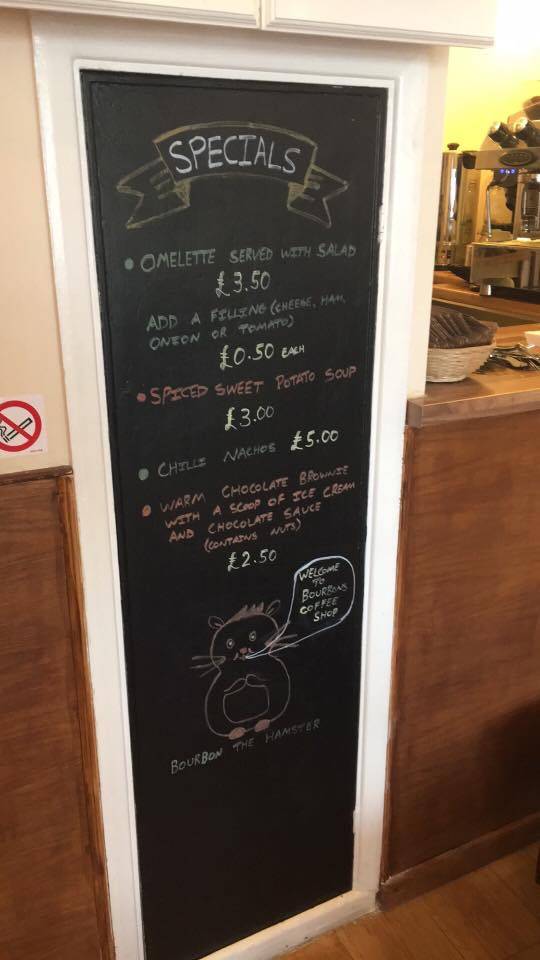 SPECIALS
• OMELETTE SERVED WITH SALAD
£3.50
ADD A FILLING (CHEESE, HAM,
ONION OR TOMATO)
£0.50 EACH
• SPICED SWEET POTATO SOUP
£3.00
• CHILLI NACHOS £5.00
• WARM CHOCOLATE BROWNIE
WITH A SCOOP OF ICE CREAM
AND CHOCOLATE SAUCE
(CONTAINS NUTS)
£2.50
WELCOME
TO
BOURBONS
COFFEE
SHOP
BOURBON THE HAMSTER